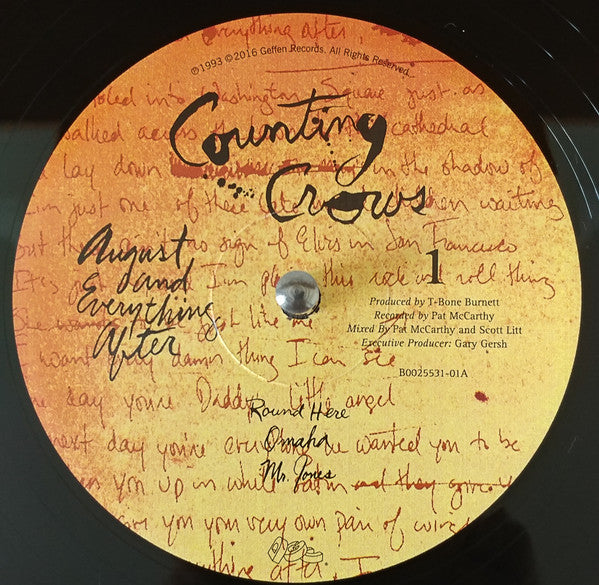 everything after,
℗1993 ©2016 Geffen Records. All Rights Reserved.
into Washington Square just as
walked across the cathedral
lay down in the shadow of
I'm just one of these waiting
but no sign of Elvis in San Francisco
this rock and roll thing
like me
want damn thing I can see
day you're Daddy's little angel
next day you're everyone wanted you to be
you up in white and they give
you your very own pair of
after, I
Counting
Crows
August
and
Everything
After
1
Produced by T-Bone Burnett
Recorded by Pat McCarthy
Mixed By Pat McCarthy and Scott Litt
Executive Producer: Gary Gersh
B0025531-01A
Round Here
Omaha
Mr. Jones